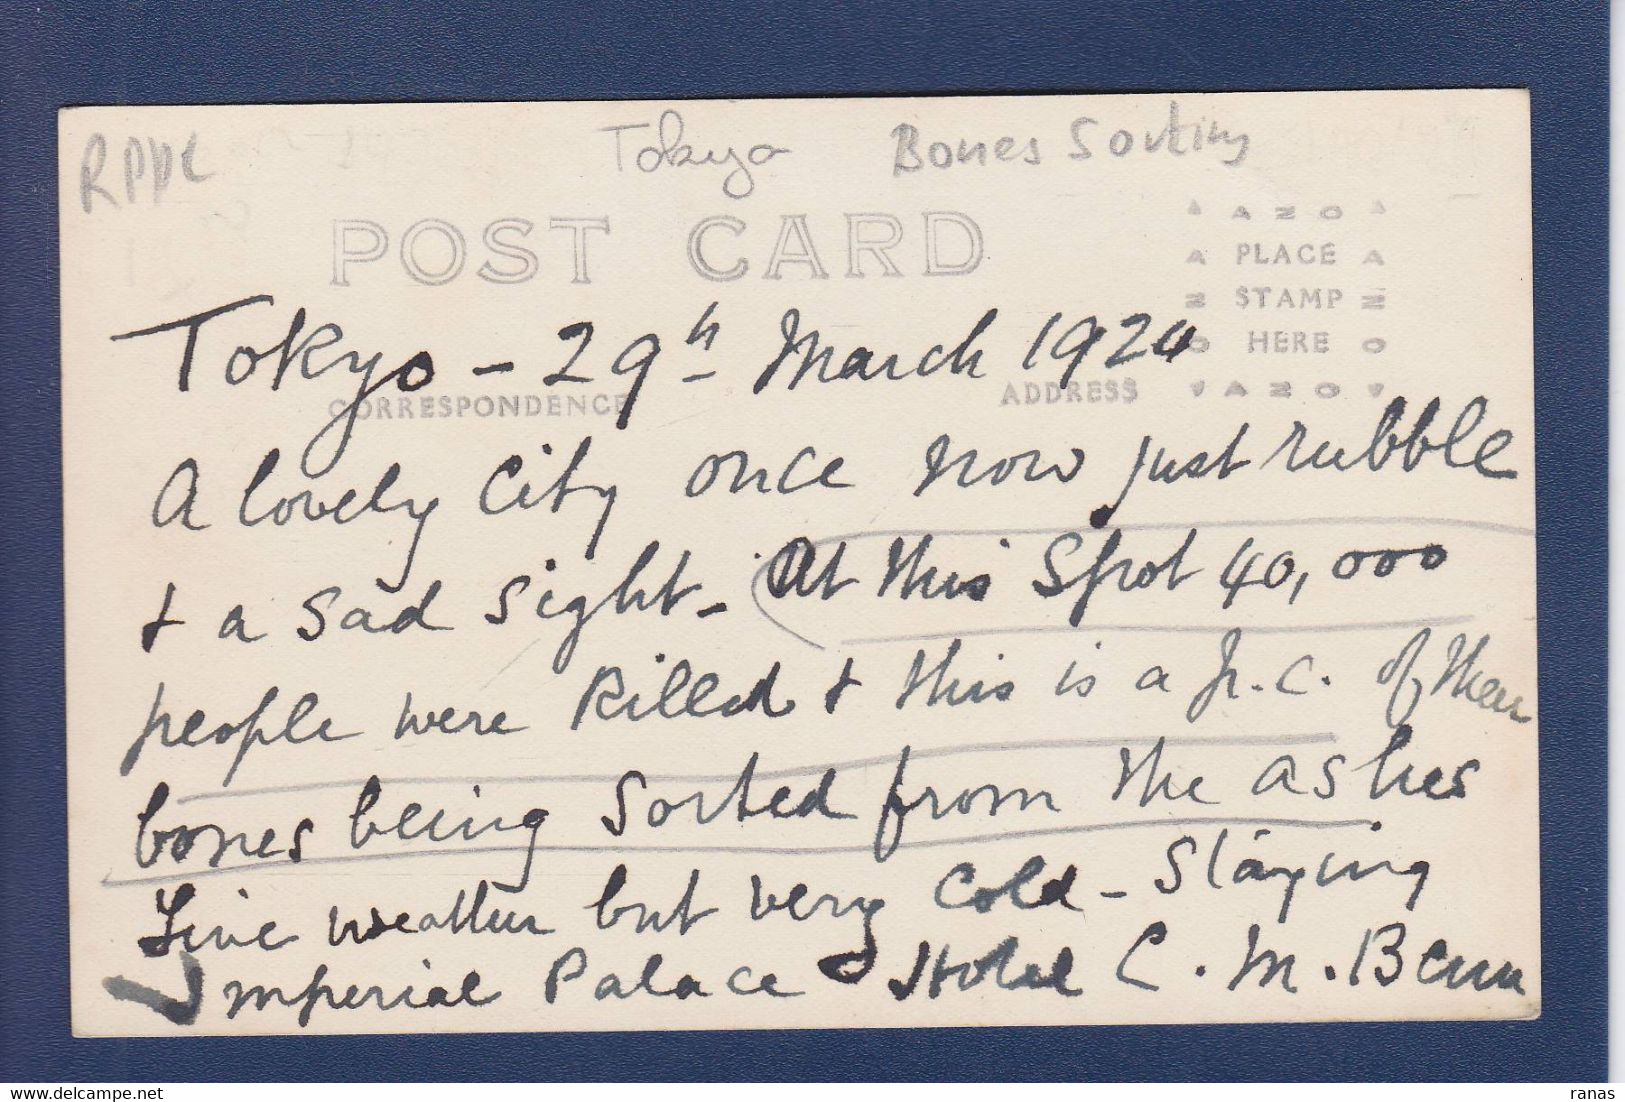 RPPC Tokyo Bones Sorting
POST CARD
AZO
PLACE
STAMP
HERE
AZO
Tokyo - 29th March 1924
CORRESPONDENCE ADDRESS
A lovely City once now just rubble
& a sad sight - At this Spot 40,000
people were Killed & this is a p.c. of their
bones being sorted from the ashes
Fine weather but very cold - Staying
Imperial Palace Hotel C. M. Benn
ranas